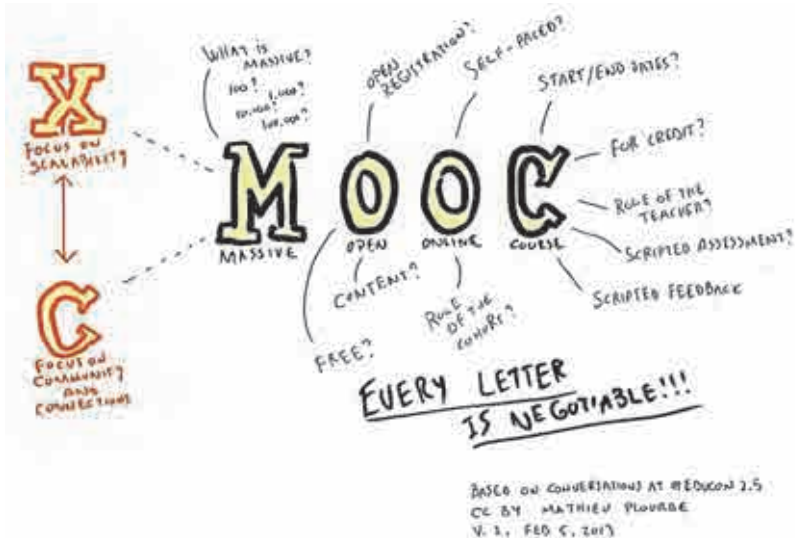 X
FOCUS ON
SCALABILITY
C
FOCUS ON
COMMUNITY
AND
CONNECTIONS
WHAT IS
MASSIVE?
100?
1,000?
10,000?
100,000?
OPEN
REGISTRATION?
SELF-PACED?
START/END DATES?
FOR CREDIT?
ROLE OF THE
TEACHER?
SCRIPTED ASSESSMENT?
SCRIPTED FEEDBACK
MOOC
MASSIVE
OPEN
ONLINE
COURSE
CONTENT?
FREE?
ROLE
OF THE
COHORT?
EVERY LETTER
IS NEGOTIABLE!!!
BASED ON CONVERSATIONS AT #EDUCON 2.5
CC BY MATHIEU PLOURDE
V. 2, FEB 5, 2013